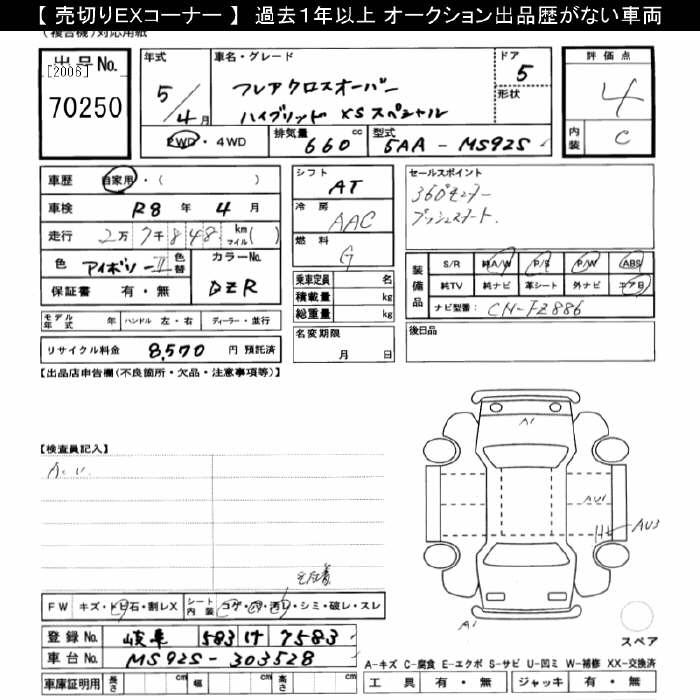 【 売切りEXコーナー 】 過去１年以上 オークション出品歴がない車両
(複合機)対応用紙
出品No.
[2006]
70250
年式
5/4月
車名・グレード
フレアクロスオーバー
ハイブリッド XSスペシャル
ドア
5
形状
評価点
4
内装
C
2WD・4WD
排気量 660 cc
型式 5AA - MS92S
車歴 自家用・( )
車検 R8 年 4 月
走行 2万 7千 848 km マイル( )
色 アイボリーII 色替
カラーNo.
DZR
保証書 有・無
シフト
AT
冷房
AAC
燃料
G
乗車定員 名
積載量 kg
総重量 kg
名変期限
月 日
セールスポイント
360°モニター
プッシュスタート.
装備品
S/R 純A/W P/S P/W ABS
純TV 純ナビ 革シート 外ナビ エアB
ナビ型番: CN-FZ886
後日品
モデル年式 年 ハンドル 左・右 ディーラー・並行
リサイクル料金 8,570 円 預託済
【出品店申告欄(不良箇所・欠品・注意事項等)】
【検査員記入】
A.U.
A1
AU1
AU3
A1
FW キズ・トビ石・割レX
シート内装 コゲ・穴・汚レ・シミ・破レ・スレ
登録No. 岐阜 583 け 7583
車台No. MS92S-303528
車庫証明用 長さ cm 幅 cm 高さ cm
スペア
A-キズ C-腐食 E-エクボ S-サビ U-凹ミ W-補修 XX-交換済
工具 有・無 ジャッキ 有・無